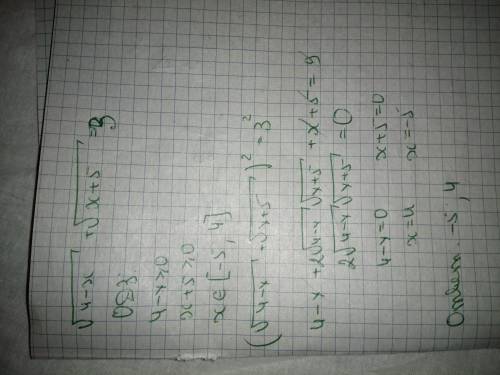 √4-x + √x+5 = 3
ОДЗ:
4-x ≥ 0
x+5 ≥ 0
x ∈ [-5, 4]
(√4-x + √x+5)² = 3²
4-x + 2√4-x √x+5 + x+5 = 9
2√4-x √x+5 = 0
4-x=0 x+5=0
x=4 x=-5
Ответ: -5, 4